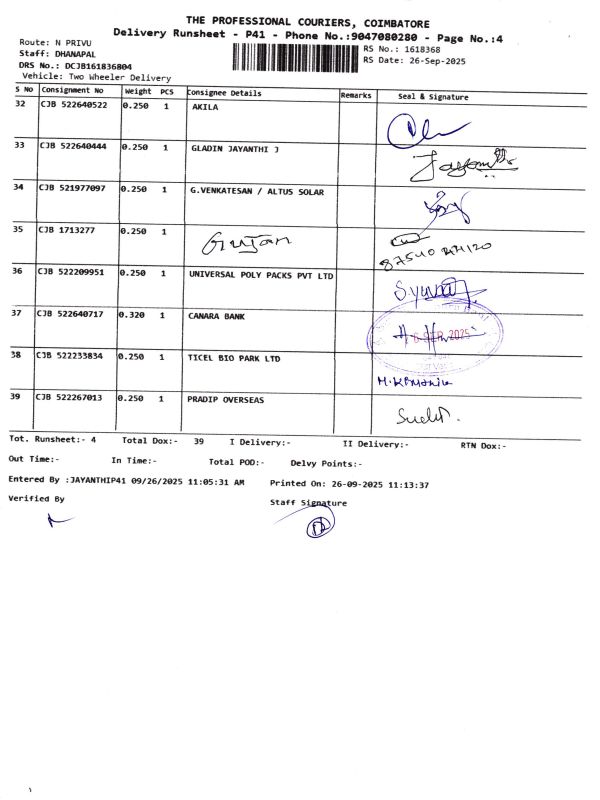 THE PROFESSIONAL COURIERS, COIMBATORE
Delivery Runsheet - P41 - Phone No.:9047080280 - Page No.:4
Route: N PRIVU
RS No.: 1618368
Staff: DHANAPAL
RS Date: 26-Sep-2025
DRS No.: DCJB161836804
Vehicle: Two Wheeler Delivery
S No Consignment No Weight PCS Consignee Details Remarks Seal & Signature
32 CJB 522640522 0.250 1 AKILA
33 CJB 522640444 0.250 1 GLADIN JAYANTHI J
34 CJB 521977097 0.250 1 G.VENKATESAN / ALTUS SOLAR
35 CJB 1713277 0.250 1
36 CJB 522209951 0.250 1 UNIVERSAL POLY PACKS PVT LTD
37 CJB 522640717 0.320 1 CANARA BANK
38 CJB 522233834 0.250 1 TICEL BIO PARK LTD
39 CJB 522267013 0.250 1 PRADIP OVERSEAS
Tot. Runsheet:- 4 Total Dox:- 39 I Delivery:- II Delivery:- RTN Dox:-
Out Time:- In Time:- Total POD:- Delvy Points:-
Entered By :JAYANTHIP41 09/26/2025 11:05:31 AM Printed On: 26-09-2025 11:13:37
Verified By Staff Signature